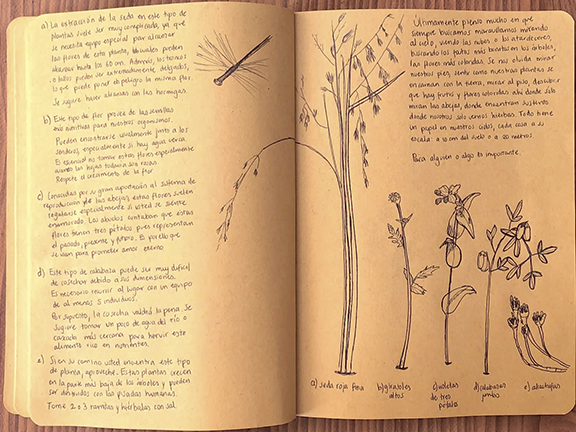 a) La extracción de la seda en este tipo de
plantas suele ser muy complicada, ya que
se necesita equipo especial para alcanzar
las flores de esta planta, las cuales pueden
alcanzar hasta los 60 cm. Además, los troncos
o tallos pueden ser extremadamente delgados,
lo que puede poner en peligro la misma flor.
Se sugiere hacer alianzas con las hormigas.
b) Este tipo de flor posee de las semillas
más nutritivas para nuestros organismos.
Pueden encontrarse usualmente junto a los
senderos, especialmente si hay agua cerca.
Es esencial no tomar estas flores especialmente
cuando las hojas todavía son rosas.
Respete el crecimiento de la flor.
c) Conocidas por su gran aportación al sistema de
reproducción de las abejas, estas flores suelen
regalarse especialmente si usted se siente
enamorado. Los abuelos contaban que estas
flores tienen tres pétalos pues representan
el pasado, presente y futuro. Es por ello que
se usan para prometer amor eterno.
d) Este tipo de calabaza puede ser muy difícil
de cosechar debido a sus dimensiones.
Es necesario reunir al lugar con un equipo
de al menos 5 individuos.
Por supuesto, la cosecha valdrá la pena. Se
sugiere tomar un poco de agua del río o
cascada más cercana para hervir este
alimento rico en nutrientes.
e) Si en su camino usted encuentra este tipo
de planta, aproveche. Estas plantas crecen
en la parte más baja de los árboles y pueden
ser destruidas con las pisadas humanas.
Tome 2 o 3 ramitas y hiérbalas con sal.
Últimamente pienso mucho en que
siempre buscamos maravillarnos mirando
al cielo, viendo las nubes o los atardeceres,
buscando los frutos más bonitos en los árboles,
las flores más coloridas. Se nos olvida mirar
nuestros pies, sentir como nuestras plantas se
encarnan con la tierra, mirar al piso, descubrir
que hay frutos y flores coloridas ahí donde sólo
miran las abejas, donde encuentran sustento
donde nosotros solo vemos hierbas. Todo tiene
un papel en nuestros ciclos, cada cosa a su
escala: a 10 cm del suelo o a 20 metros.
Para alguien o algo es importante.
a) seda roja fina
b) girasoles
altos
c) violetas
de tres
pétalos
d) calabazas
jumbo
e)